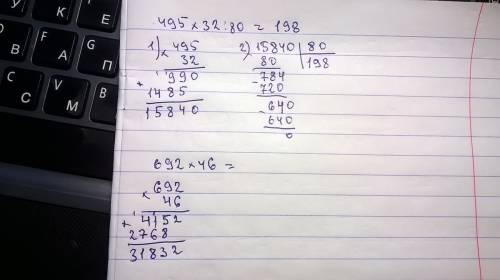 У К Е Н
Г
П
495 × 32 : 80 = 198
1) × 495 2) 15840 | 80
32 80 198
990 - 784
+ 1485 720
15840 - 640
640
0
692 × 46 =
× 692
46
+ 4152
2768
31832